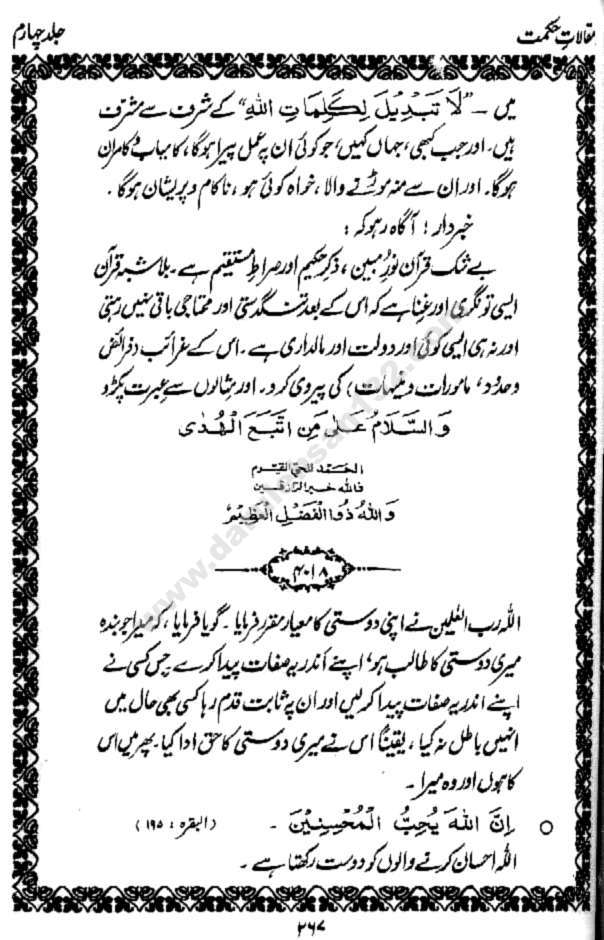 مقالاتِ حکمت
جلد چہارم
میں ۔ "لَا تَبْدِیْلَ لِکَلِمَاتِ اللّٰہِ" کے شرف سے مشرّف
ہیں۔ اور جب کبھی، جہاں کہیں، جو کوئی ان پر عمل پیرا ہوگا، کامیاب و کامران
ہوگا۔ اور ان سے منہ موڑنے والا، خواہ کوئی ہو، ناکام و پریشان ہوگا۔
خبردار! آگاہ رہو کہ:
بے شک قرآن نورِ مبین، ذکرِ حکیم اور صراطِ مستقیم ہے۔ بلاشبہ قرآن
ایسی تونگری اور غِنا ہے کہ اس کے بعد تنگدستی اور محتاجی باقی نہیں رہتی
اور نہ ہی ایسی کوئی اور دولت اور مالداری ہے۔ اس کے غرائب (فرائض
وحدُود، مامورات و منہیات) کی پیروی کرو۔ اور مثالوں سے عبرت پکڑو
وَالسَّلَامُ عَلٰی مَنِ اتَّبَعَ الْہُدٰی
الحَمد للحیّ القیّوم
فاللہ خیر الرّازقین
وَاللّٰہُ ذُوالْفَضْلِ الْعَظِیْمِ
۴۰۱۸
اللہ رب العٰلمین نے اپنی دوستی کا معیار مقرر فرمایا۔ گویا فرمایا، کہ میرا جو بندہ
میری دوستی کا طالب ہو، اپنے اندر یہ صفات پیدا کرے جس کسی نے
اپنے اندر یہ صفات پیدا کر لیں اور ان پہ ثابت قدم رہا کسی بھی حال میں
انہیں باطل نہ کیا، یقیناً اس نے میری دوستی کا حق ادا کیا۔ پھر میں اس
کا ہوں اور وہ میرا۔
○ اِنَّ اللّٰہَ یُحِبُّ الْمُحْسِنِیْنَ ۔ (البقرہ : ۱۹۵)
اللہ احسان کرنے والوں کو دوست رکھتا ہے۔
۲۶۷